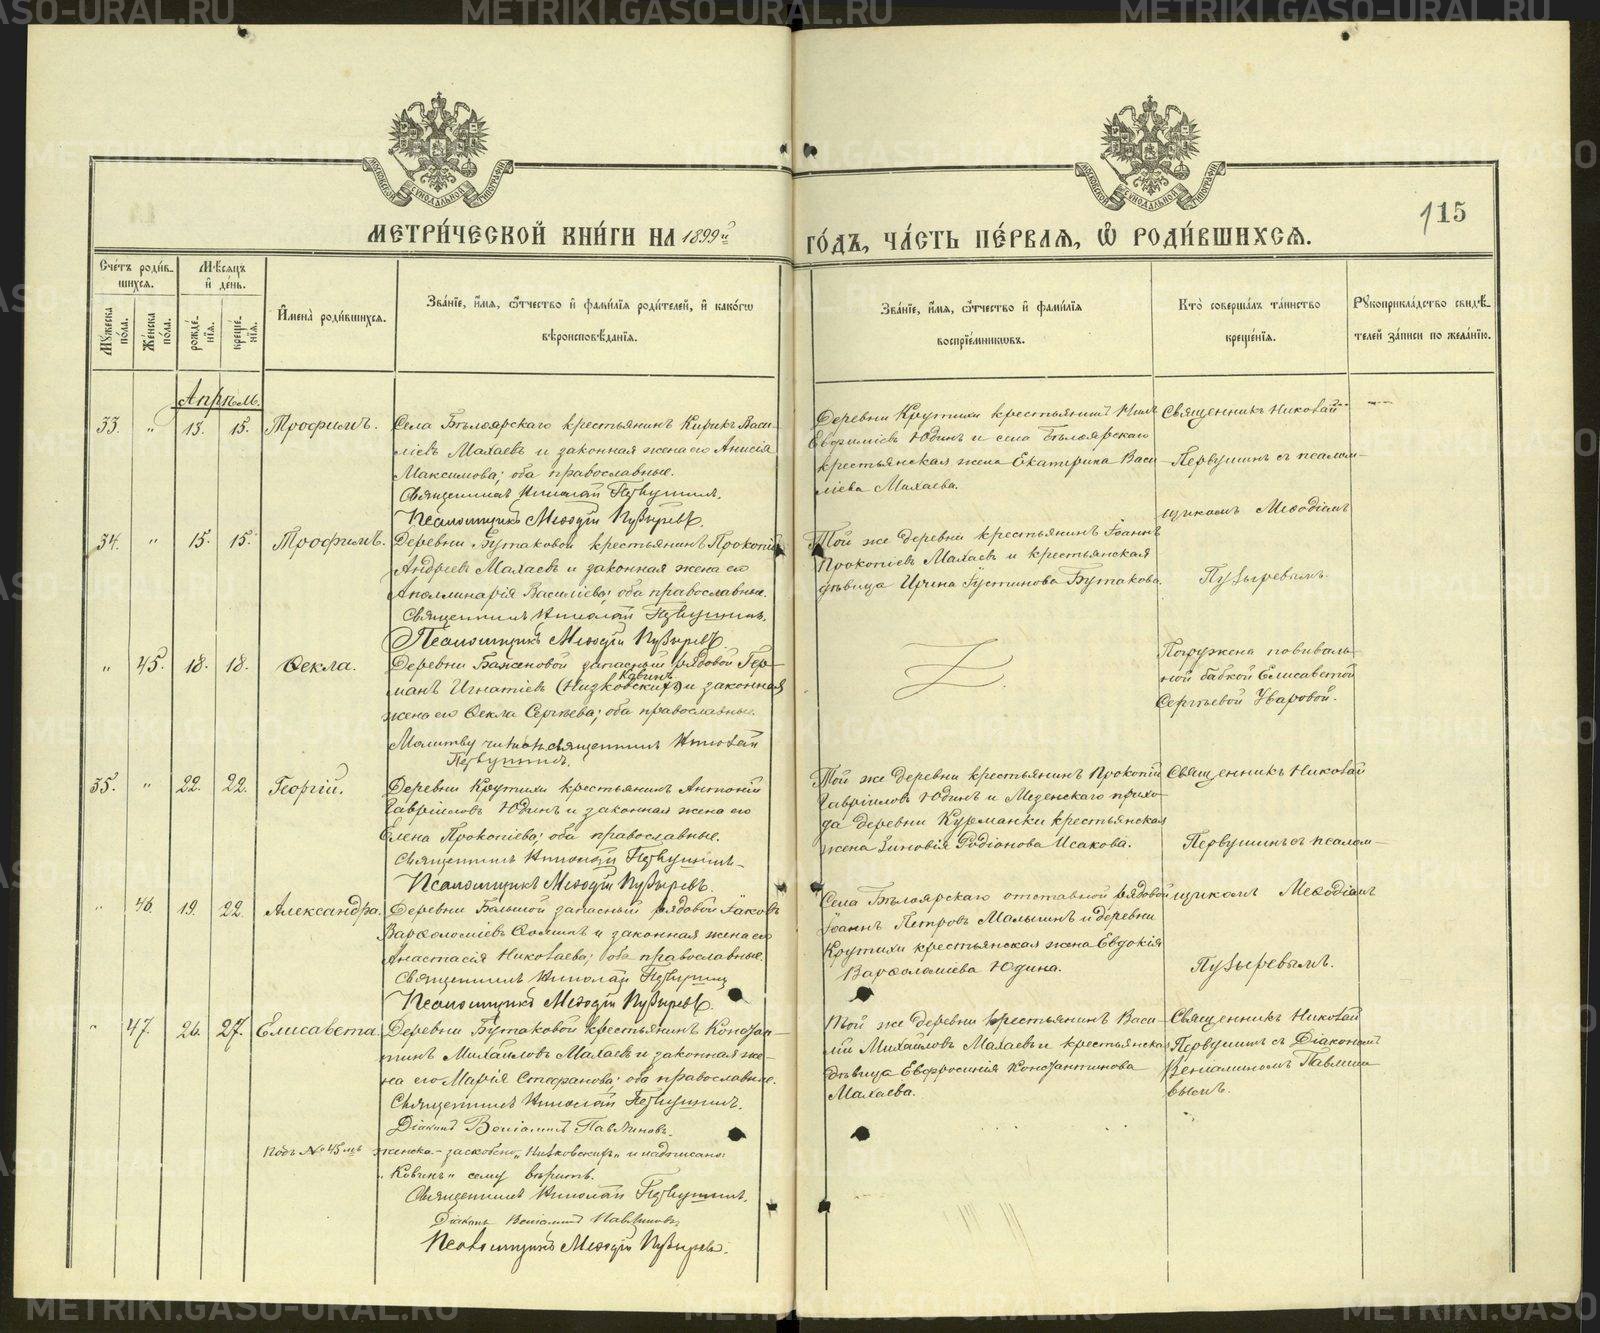 МЕТРИ́ЧЕСКОЙ КНИ́ГИ НА 1899й
ГО́ДЪ, ЧА́СТЬ ПЕ́РВАЯ, Ѽ РОДИ́ВШИХСЯ.
115
Сче́тъ роди́в-
шихся.
Мѣсяцъ
и҆ де́нь.
Мꙋ́жеска по́ла.
Же́нска по́ла.
рожде́нїѧ.
креще́нїѧ.
И҆мена̀ роди́вшихся.
Зва́нїе, и҆́мя, ѻ҆́тчество и҆ фами́лїя роди́телей, и҆ како́гѡ
вѣроисповѣ́данїя.
Зва́нїе, и҆́мя, ѻ҆́тчество и҆ фами́лїя
воспрїе́мниковъ.
Кто̀ соверша́лъ та́инство
креще́нїя.
Рꙋкоприкла́дство свидѣ́-
телей за́писи по жела́нїю.
Апрѣль.
33. „ 13. 15. Трофимъ.
Села Бѣлоярскаго крестьянинъ Кирикъ Васи-
лiевъ Махаевъ и законная жена его Анисiя
Максимова; оба православные.
Священникъ Николай Первушинъ.
Псаломщикъ Меѳодiй Пузыревъ.
Деревни Крутихи крестьянинъ Нилъ
Евфимiевъ Юдинъ и села Бѣлоярскаго
крестьянская жена Екатерина Васи-
лiева Махаева.
Священникъ Николай
Первушинъ съ псалом-
щикомъ Меѳодiемъ
Пузыревымъ.
34. „ 15. 15. Трофимъ.
Деревни Бутаковой крестьянинъ Прокопiй
Андреевъ Махаевъ и законная жена его
Аполлинарiя Василiева; оба православные.
Священникъ Николай Первушинъ.
Псаломщикъ Меѳодiй Пузыревъ.
Той же деревни крестьянинъ Iоаннъ
Прокопiевъ Махаевъ и крестьянская
дѣвица Ирина Iустинова Бутакова.
„ 45. 18. 18. Ѳекла.
Деревни Баженовой запасный рядовой Гер-
манъ Игнатiевъ (Низковскихъ) Ковинъ и законная
жена его Ѳекла Сергѣева; оба православные.
Молитву читалъ священникъ Николай
Первушинъ.
Погружена повиваль-
ной бабкой Елисаветой
Сергѣевой Уваровой.
35. „ 22. 22. Георгiй.
Деревни Крутихи крестьянинъ Антонiй
Гаврiиловъ Юдинъ и законная жена его
Елена Прокопiева; оба православные.
Священникъ Николай Первушинъ
Псаломщикъ Меѳодiй Пузыревъ.
Той же деревни крестьянинъ Прокопiй
Гаврiиловъ Юдинъ и Мезенскаго прихо-
да деревни Курманки крестьянская
жена Зиновiя Родiонова Исакова.
Священникъ Николай
Первушинъ съ псалом-
щикомъ Меѳодiемъ
Пузыревымъ.
„ 46. 19. 22. Александра.
Деревни Большой запасный рядовой Iаковъ
Варѳоломеевъ Ѳоминъ и законная жена его
Анастасiя Николаева; оба православные.
Священникъ Николай Первушинъ
Псаломщикъ Меѳодiй Пузыревъ.
Села Бѣлоярскаго отставной рядовой
Iоаннъ Петровъ Малышинъ и деревни
Крутихи крестьянская жена Евдокiя
Варѳоломеева Юдина.
„ 47. 26. 27. Елисавета
Деревни Бутаковой крестьянинъ Констан-
тинъ Михайловъ Махаевъ и законная же-
на его Марiя Стефанова; оба православные.
Священникъ Николай Первушинъ.
Дiаконъ Венiаминъ Павлиновъ.
Той же деревни крестьянинъ Васи-
лiй Михайловъ Махаевъ и крестьянская
дѣвица Евфросинiя Константинова
Махаева.
Священникъ Николай
Первушинъ съ Дiакономъ
Венiаминомъ Павлино-
вымъ.
Подъ № 45мъ женска – заскоблено „Низковскихъ“ и надписано:
„Ковинъ“ сему вѣрить.
Священникъ Николай Первушинъ.
Дiаконъ Венiаминъ Павлиновъ.
Псаломщикъ Меѳодiй Пузыревъ.
METRIKI.GASO-URAL.RU